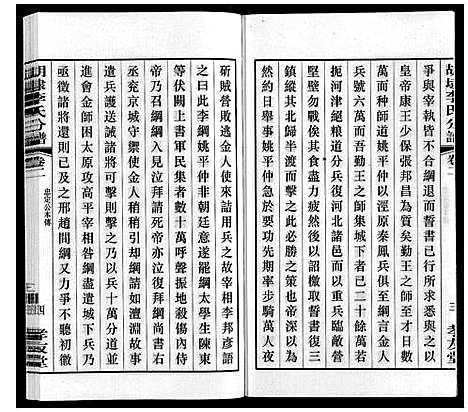 胡埭李氏分譜
卷二
三
孝友堂
爭與宰執皆不合綱退而誓書已行所求悉與之以
皇帝康王少保張邦昌為質矣時勤王之師至者已
萬而种師道姚平仲以涇原秦鳳兵俱至綱言金人
兵號六萬而吾勤王之師集城下者已二十餘萬若
扼河津絕糧道分兵復河北諸邑而以重兵臨敵營
堅壁勿戰俟其食盡力疲然後以詔檄取誓書復三
鎮縱其北歸半渡而擊之此必勝之策也上深以為
然約日舉事姚平仲急於要功先期率步騎萬人夜
斫賊營敗逃去金人使來詰用兵之故宰相李邦彥語
之曰此李綱姚平仲非朝廷意遂罷綱太學生陳東
等伏闕上書軍民集者數十萬呼聲振地殺傷內侍
帝乃召綱綱入見泣拜請死帝亦泣復拜綱尚書右
丞充京城守禦使金人稍稍引却綱請如澶淵故事
遣兵護送誡諸將可擊則擊之乃以兵十萬分道並
進會金師困太原攻高平宰相咎綱盡遣城下兵於
亟徵諸將還則已及之邢趙間綱又力爭不聽初徵
胡埭李氏分譜
卷二
忠定公本傳
四
孝友堂